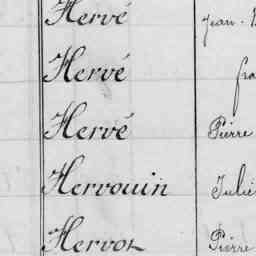 Hervé Jean
Hervé fra
Hervé Pierre
Hervouin Julie
Hervot Pierre